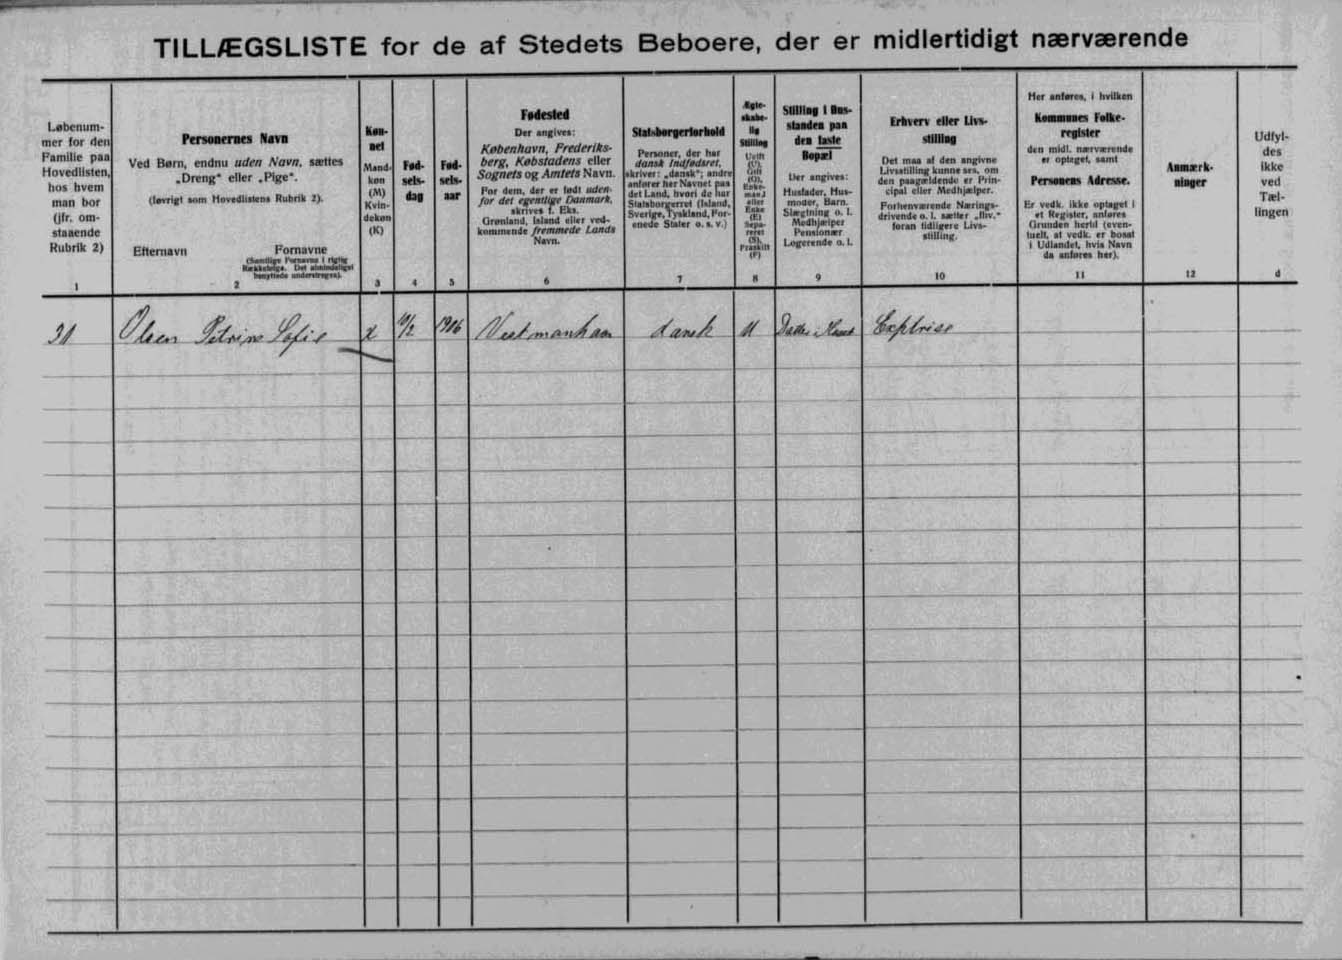 TILLÆGSLISTE for de af Stedets Beboere, der er midlertidigt nærværende
Løbenum-
mer for den
Familie paa
Hovedlisten,
hos hvem
man bor
(jfr. om-
staaende
Rubrik 2)
1
Personernes Navn
Ved Børn, endnu uden Navn, sættes
„Dreng“ eller „Pige“.
(Iøvrigt som Hovedlistens Rubrik 2).
Efternavn
Fornavne
(Samtlige Fornavne i rigtig
Rækkefølge. Det almindeligst
benyttede understreges).
2
Køn-
net
Mand-
køn
(M)
Kvin-
dekøn
(K)
3
Fød-
sels-
dag
4
Fød-
sels-
aar
5
Fødested
Der angives:
København, Frederiks-
berg, Købstadens eller
Sognets og Amtets Navn.
For dem, der er født uden-
for det egentlige Danmark,
skrives f. Eks.
Grønland, Island eller ved-
kommende fremmede Lands
Navn.
6
Statsborgerforhold
Personer, der har
dansk Indfødsret,
skriver: „dansk“; andre
anfører her Navnet paa
det Land, hvori de har
Statsborgerret (Island,
Sverige, Tyskland, For-
enede Stater o. s. v.)
7
Ægte-
skabe-
lig
Stilling
Ugift
(U),
Gift
(G),
Enke-
mand
eller
Enke
(E)
Sepa-
reret
(S),
Fraskilt
(F)
8
Stilling i Hus-
standen paa
den faste
Bopæl
Der angives:
Husfader, Hus-
moder, Barn.
Slægtning o. l.
Medhjælper
Pensionær
Logerende o. l.
9
Erhverv eller Livs-
stilling
Det maa af den angivne
Livsstilling kunne ses, om
den paagældende er Prin-
cipal eller Medhjælper.
Forhenværende Nærings-
drivende o. l. sætter „fhv.“
foran tidligere Livs-
stilling.
10
Her anføres, i hvilken
Kommunes Folke-
register
den midl. nærværende
er optaget, samt
Personens Adresse.
Er vedk. ikke optaget i
et Register, anføres
Grunden hertil (even-
tuelt, at vedk. er bosat
i Udlandet, hvis Navn
da anføres her).
11
Anmærk-
ninger
12
Udfyl-
des
ikke
ved
Tæl-
lingen
d
31 Olsen Petrine Sofie K /2 1906 Vestmanhavn dansk U